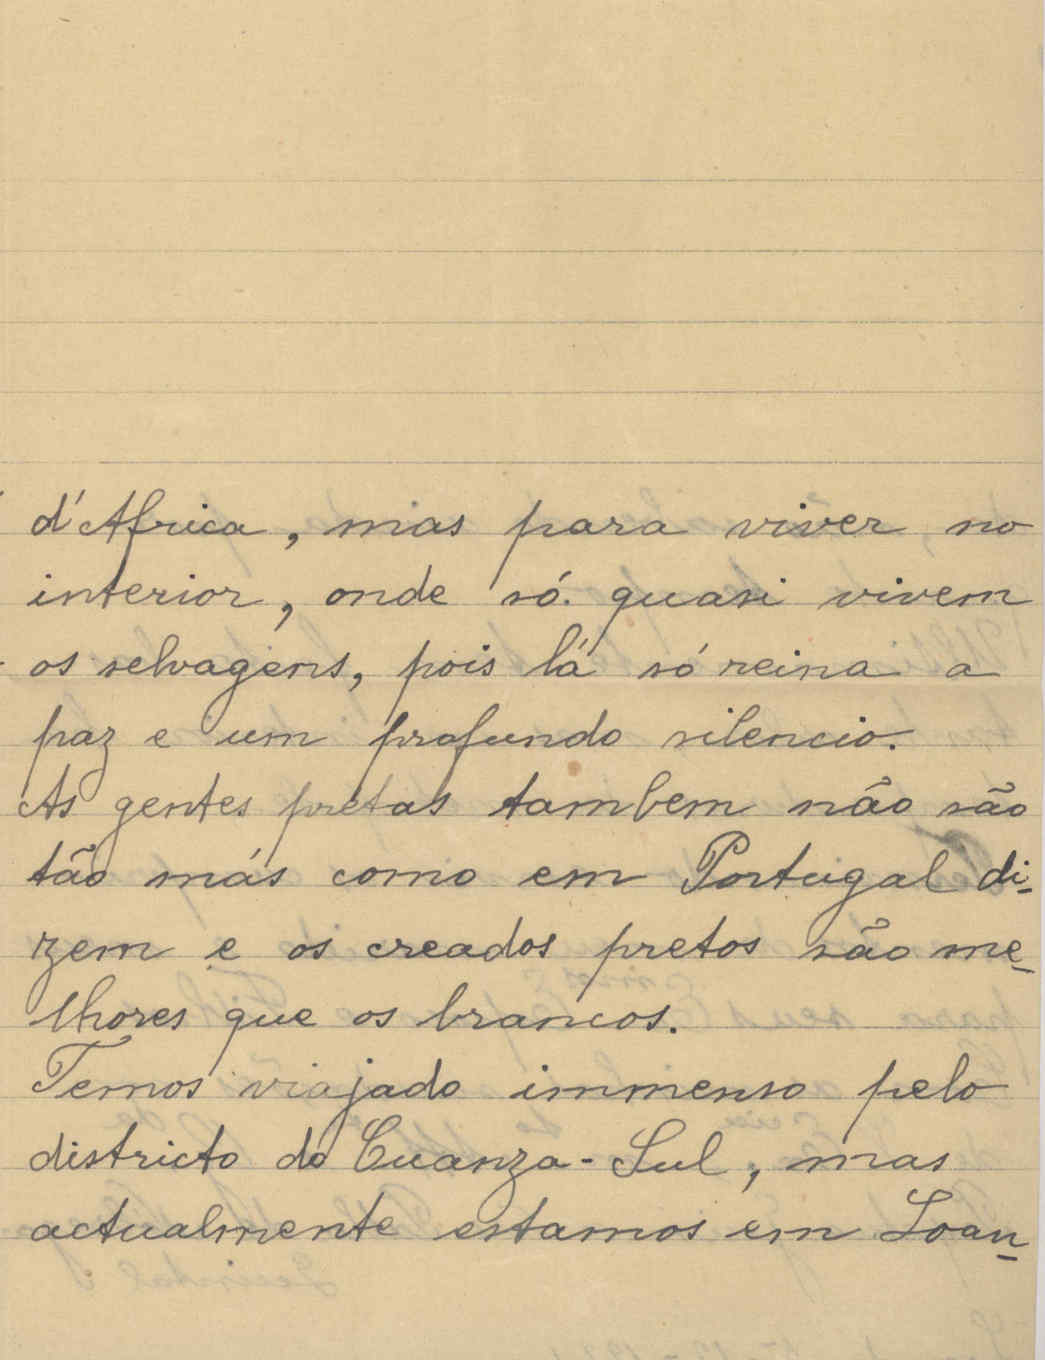 d'Africa, mas para viver, no
interior, onde só quasi vivem
os selvagens, pois lá só reina a
paz e um profundo silencio.
As gentes pretas tambem não são
tão más como em Portugal di-
zem e os creados pretos são me-
lhores que os brancos.
Temos viajado immenso pelo
districto do Cuanza-Sul, mas
actualmente estamos em Loan-